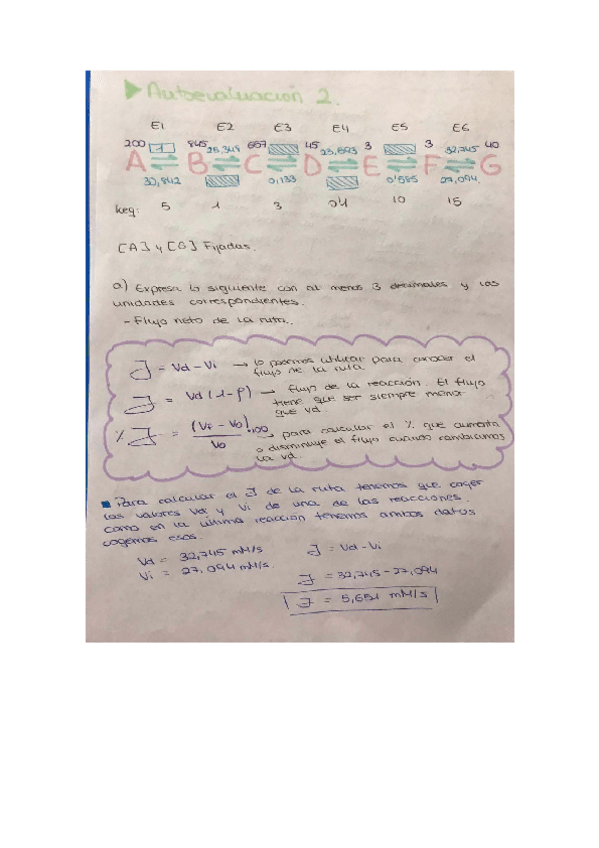 ▶ Autoevaluación 2.
E1 E2 E3 E4 E5 E6
200 845 25,349 657 45 23,593 3 3 32,745 40
A ⇌ B ⇌ C ⇌ D ⇌ E ⇌ F ⇌ G
30,842 0,133 0,585 27,094
keq: 5 1 3 04 10 15
[A] y [G] Fijadas.
a) Expresa lo siguiente con al menos 3 decimales y las
unidades correspondientes.
- Flujo neto de la ruta.
J = Vd - Vi → lo podemos utilizar para conocer el
flujo de la ruta
J = Vd (1-ρ) → flujo de la reacción. El flujo
tiene que ser siempre menor
que vd.
% J = (Vi - Vo)/Vo · 100 → para calcular el % que aumenta
o disminuye el flujo cuando cambiamos
la vd.
■ Para calcular el J de la ruta tenemos que coger
los valores Vd y Vi de una de las reacciones.
como en la última reacción tenemos ambos datos
cogemos esos.
Vd = 32,745 mM/s J = Vd - Vi
Vi = 27,094 mM/s. J = 32,745 - 27,094
J = 5,651 mM/s